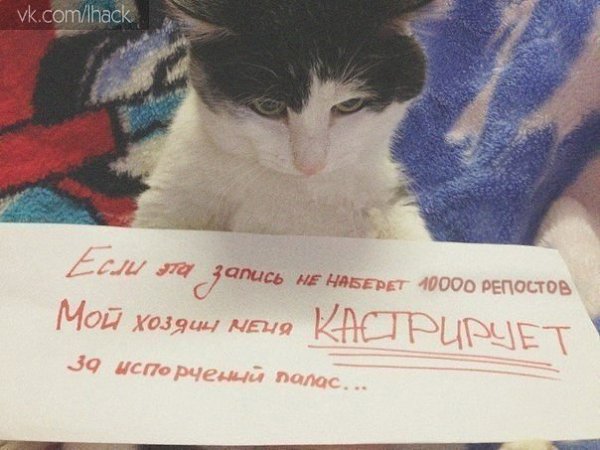 vk.com/lhack
Если эта запись не наберет 10000 репостов
Мой хозяин меня КАСТРИРУЕТ
за испорчений палас...